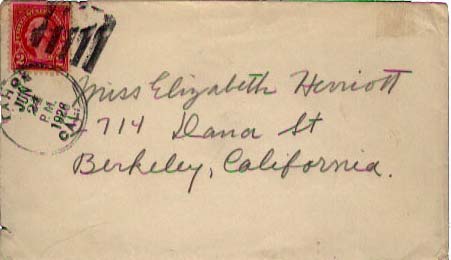 TAHOE
JUN
24
P.M.
1928
CAL.
Miss Elizabeth Herriott
2714 Dana St
Berkeley, California.